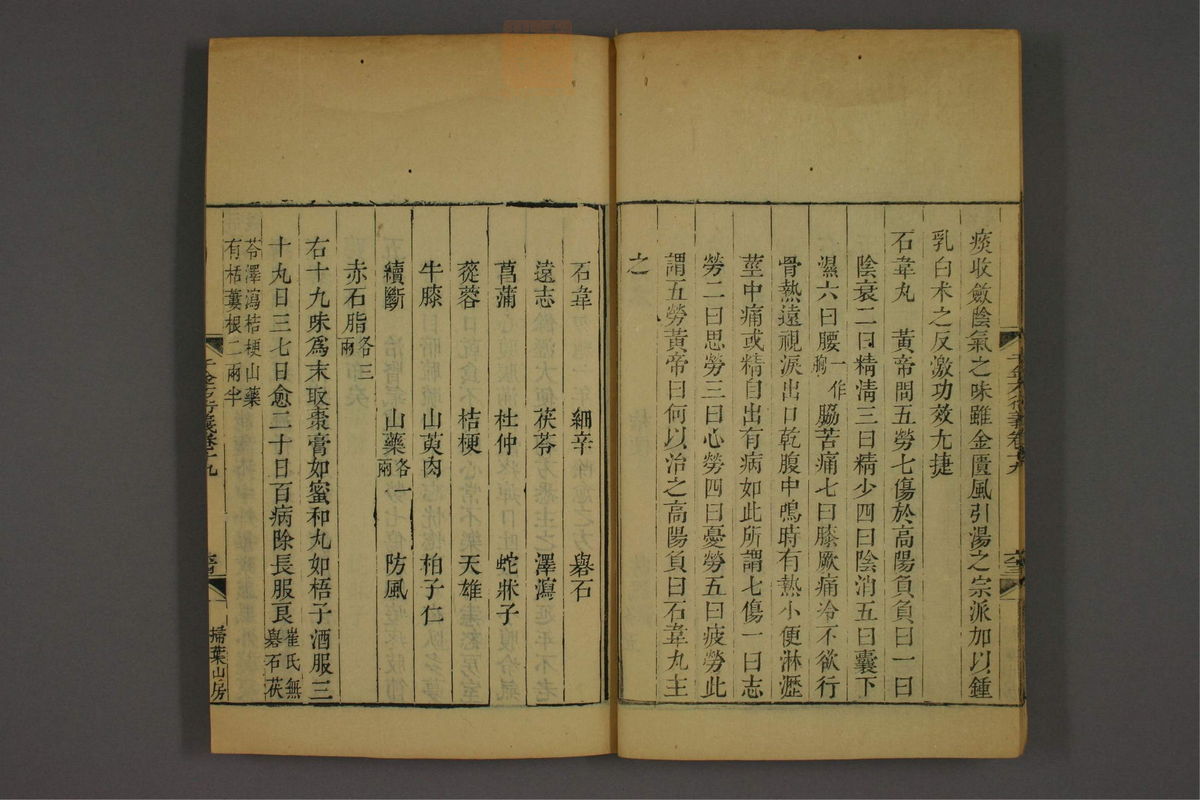 痰收斂陰氣之味雖金匱風引湯之宗派加以鍾
乳白术之反激功效尢捷
石韋丸　黃帝問五勞七傷於高陽負負曰一曰
陰衰二曰精淸三曰精少四曰陰消五曰囊下
濕六曰腰一作胸脇苦痛七曰膝厥痛冷不欲行
骨熱遠視淚出口乾腹中鳴時有熱小便淋瀝
莖中痛或精自出有病如此所謂七傷一曰志
勞二曰思勞三曰心勞四曰憂勞五曰疲勞此
謂五勞黃帝曰何以治之高陽負曰石韋丸主
之
石韋　細辛　礜石
遠志　茯苓　澤瀉
菖蒲　杜仲　蛇牀子
蓯蓉　桔梗　天雄
牛膝　山萸肉　柏子仁
續斷　山藥各一兩　防風
赤石脂各三兩
右十九味爲末取棗膏如蜜和丸如梧子酒服三
十丸日三七日愈三十日百病除長服良崔氏無礜石茯
苓澤瀉桔梗山藥
有栝蔞根二兩半
千金方衍義卷十九
掃葉山房